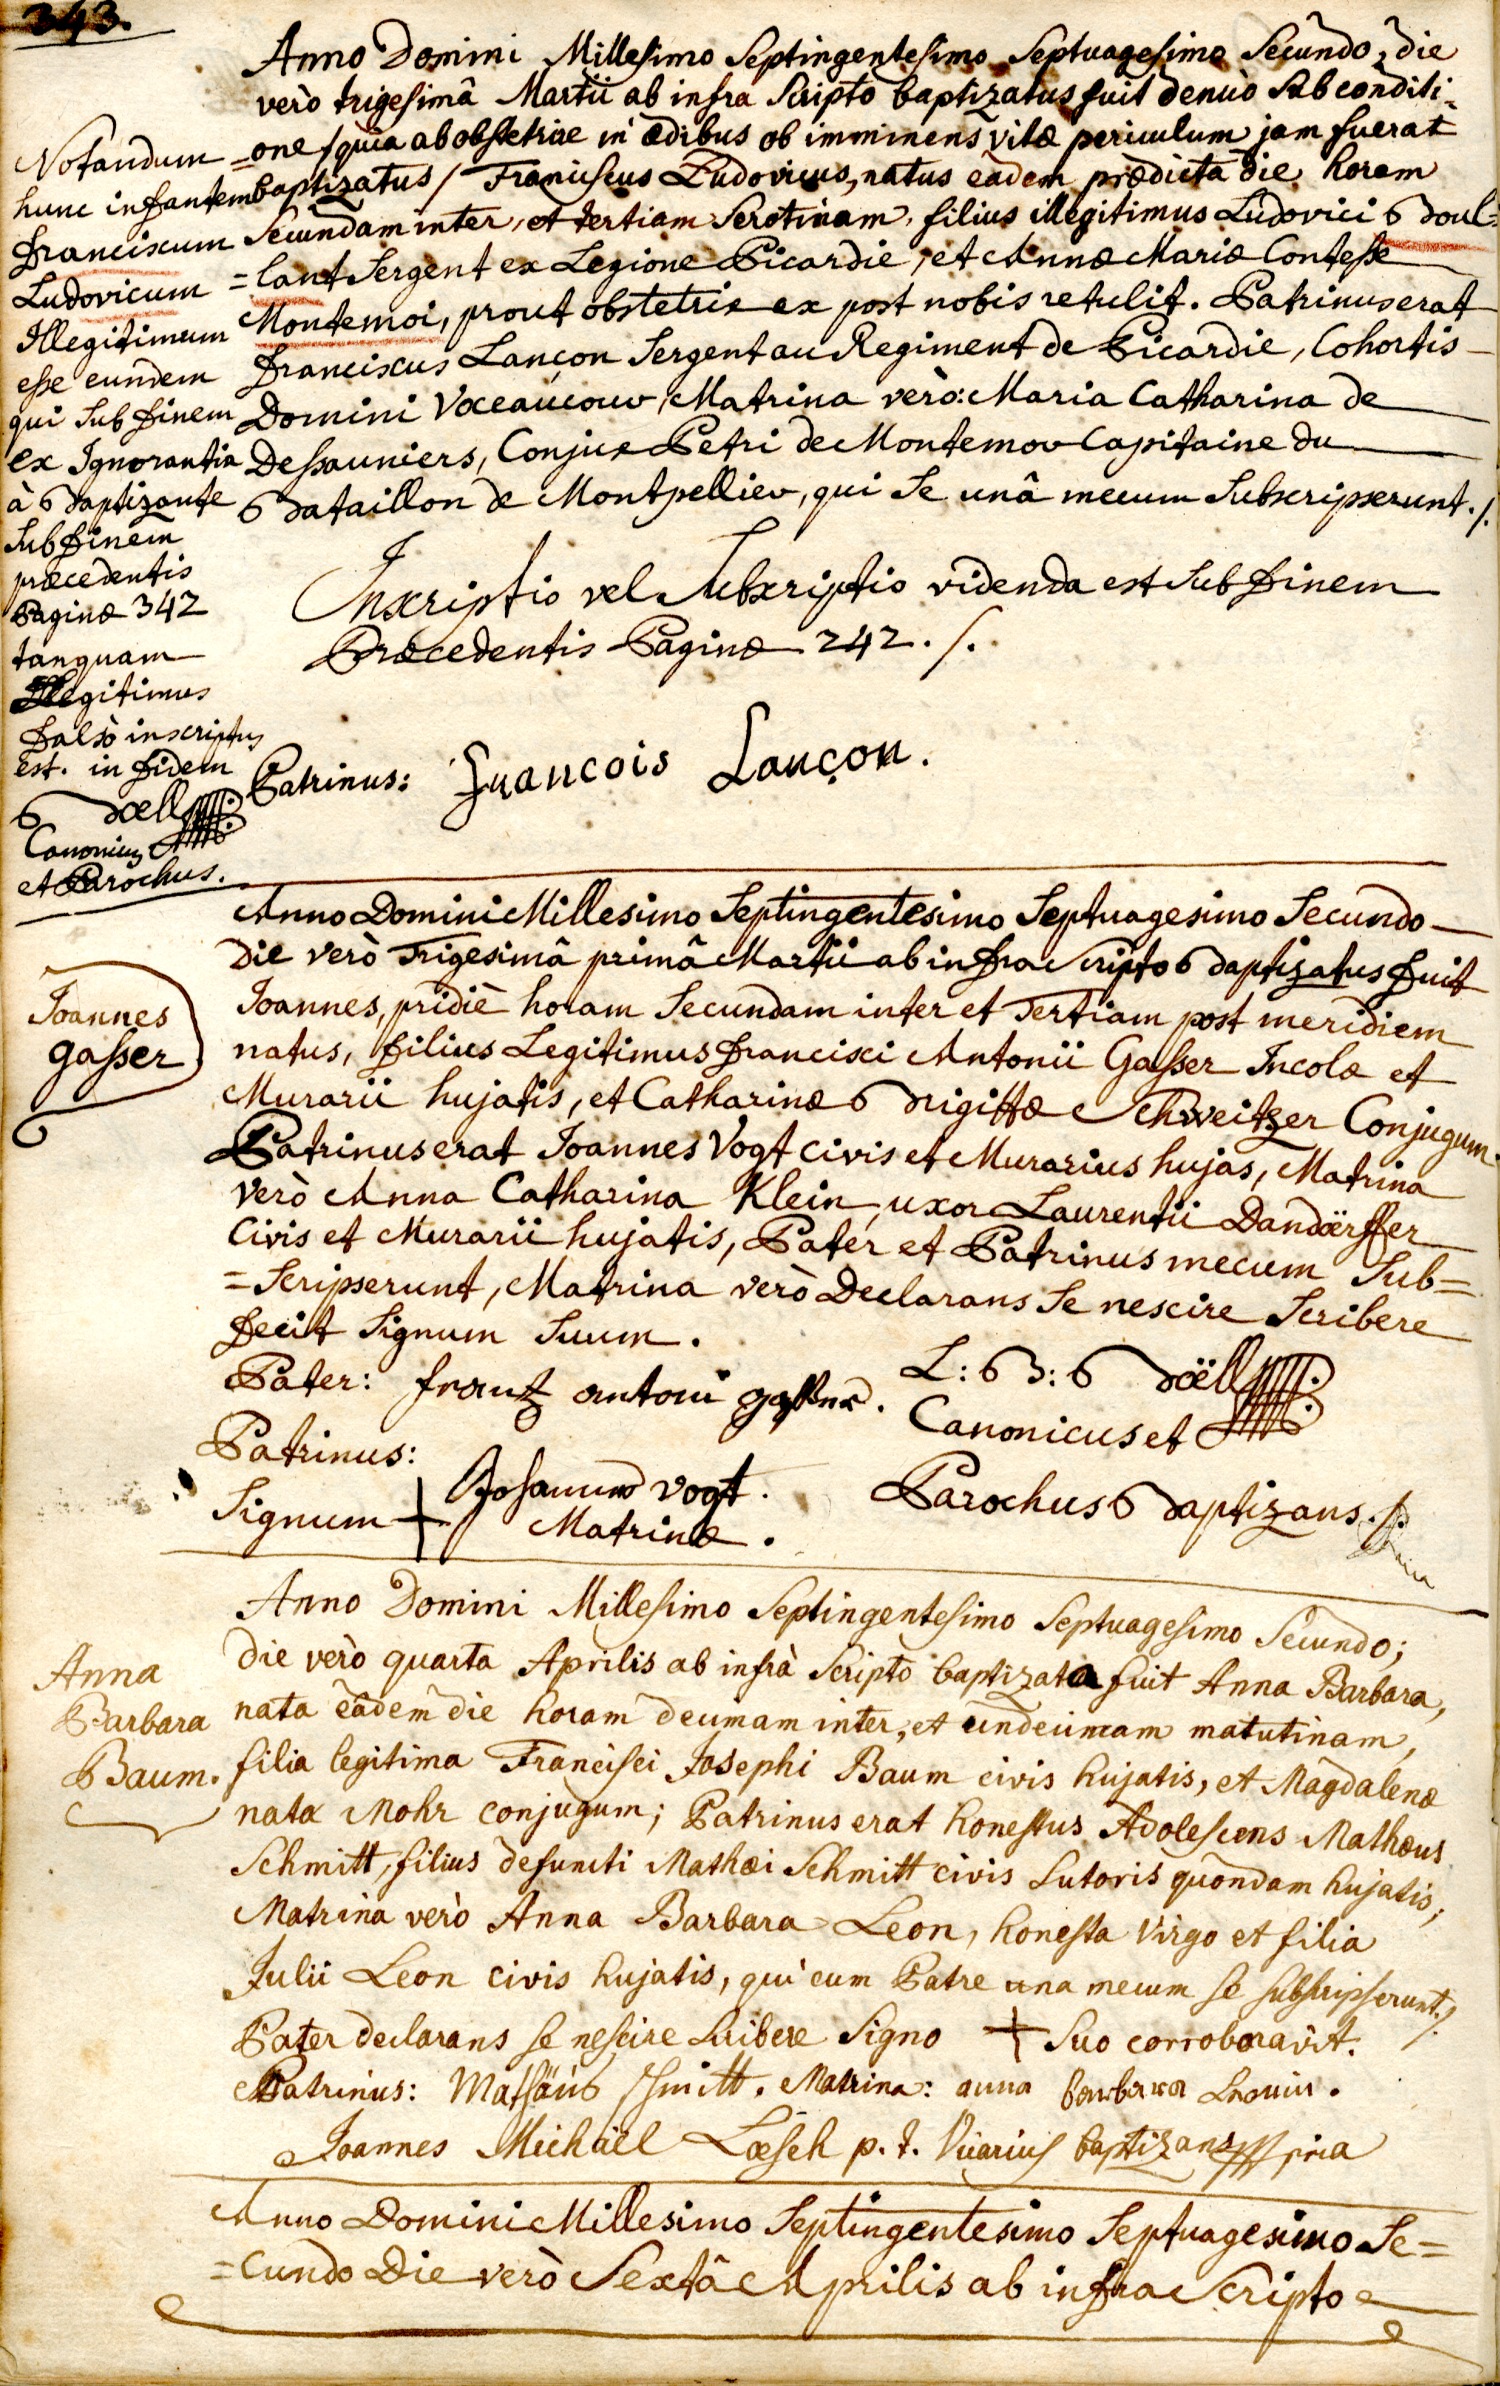 343.
Anno Domini Millesimo Septingentesimo Septuagesimo Secundo, die
verò trigesimâ Martii ab infra Scripto baptizatus fuit denuò sub conditi-
=one /quia ab obstetrice in ædibus ob imminens vitæ periculum jam fuerat
baptizatus/ Franciscus Ludovicus, natus eâdem prædicta die horam
Secundam inter, et tertiam Serotinam, filius illegitimus Ludovici Boul=
=lant Sergent ex Legione Picardie, et Annæ Mariæ Contesse
Montemoi, prout obstetrix ex post nobis retulit. Patrinus erat
Franciscus Lançon Sergent au Regiment de Picardie, Cohortis
Domini Voceaucour, Matrina verò: Maria Catharina de
Dessauniers, Conjux Petri de Montemor Capitaine du
Bataillon de Montpellier, qui se unâ mecum Subscripserunt./.
Inscriptio vel Subscriptio videnda est sub Finem
Præcedentis Paginæ 242./.
Patrinus: Francois Lançon.
Notandum
hunc infantem
Franciscum
Ludovicum
Illegitimum
esse eundem
qui sub Finem
ex Ignorantia
à Baptizante
sub Finem
præcedentis
Paginæ 342
tanquam
Illegitimus
Falsò inscriptus
est. in Fidem
Boell
Canonicus
et Parochus.
Anno Domini Millesimo Septingentesimo Septuagesimo Secundo
Die verò Trigesimâ primâ Martii ab infra Scripto Baptizatus Fuit
Joannes, pridiè horam Secundam inter et Tertiam post meridiem
natus, Filius Legitimus Francisci Antonii Gasser Incolæ et
Murarii hujatis, et Catharinæ Brigittæ Schweitzer Conjugum.
Patrinus erat Joannes Vogt civis et Murarius hujas, Matrina
verò Anna Catharina Klein, uxor Laurentii Dandörffer
Civis et Murarii hujatis, Pater et Patrinus mecum Sub=
=Scripserunt, Matrina verò Declarans Se nescire Scribere
Fecit Signum Suum.
Joannes
Gasser
Pater: frantz antoni gasser.
L: B: Boëll
Canonicus et
Parochus Baptizans./.
Patrinus:
Johannes Vogt.
Signum + Matrinæ.
Anno Domini Millesimo Septingentesimo Septuagesimo Secundo;
die verò quarta Aprilis ab infrà Scripto baptizata fuit Anna Barbara,
nata eâdem die horam decimam inter, et undecimam matutinam,
filia legitima Francisci Josephi Baum civis hujatis, et Magdalenæ
nata Mohr conjugum; Patrinus erat honestus Adolescens Mathæus
Schmitt, filius defuncti Mathæi Schmitt civis Sutoris quondam hujatis,
Matrina verò Anna Barbara Leon, honesta Virgo et filia
Julii Leon civis hujatis, qui cum Patre una mecum se subscripserunt./.
Pater declarans se nescire scribere Signo + Suo corroboravit.
Patrinus: Mathäus Schmitt. Matrina: anna barbara Leonin.
Joannes Michäel Lœsch p. t. Vicarius baptizans
Anna
Barbara
Baum.
Anno Domini Millesimo Septingentesimo Septuagesimo Se=
=cundo Die verò Sextâ Aprilis ab infra Scripto